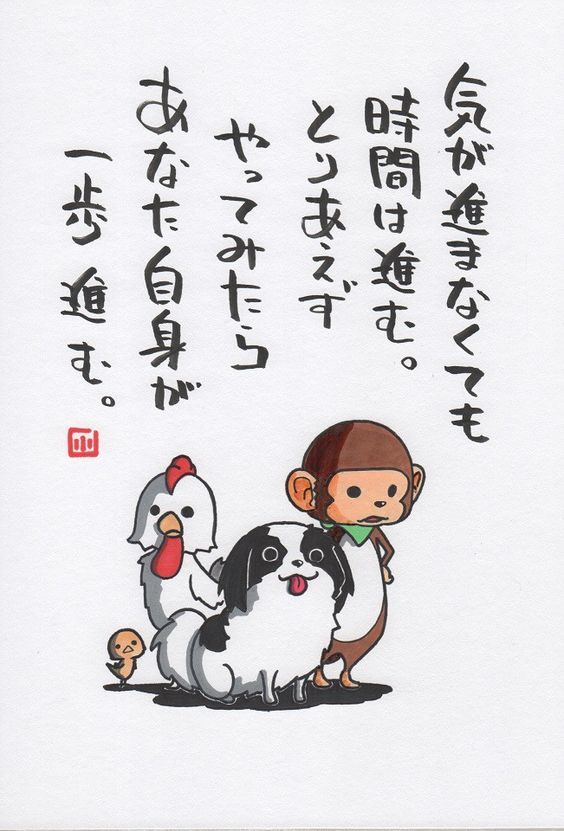 気が進まなくても
時間は進む。
とりあえず
やってみたら
あなた自身が
一歩進む。